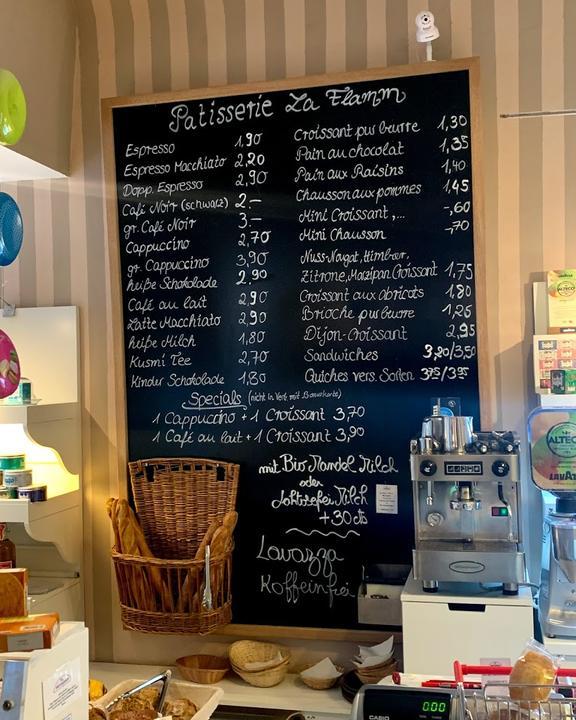 Patisserie La Flamm
Espresso 1,90
Espresso Macchiato 2,20
Dopp. Espresso 2,90
Café Noir (schwarz) 2.–
gr. Café Noir 3.–
Cappuccino 2,70
gr. Cappuccino 3,90
heiße Schokolade 2,90
Café au lait 2,90
Latte Macchiato 2,90
heiße Milch 1,80
Kusmi Tee 2,70
Kinder Schokolade 1,80
Croissant pur beurre 1,30
Pain au chocolat 1,35
Pain aux Raisins 1,40
Chausson aux pommes 1,45
Mini Croissant,... -,60
Mini Chausson -,70
Nuss-Nougat, Himbeer,
Zitrone, Marzipan Croissant 1,75
Croissant aux abricots 1,80
Brioche pur beurre 1,25
Dijon-Croissant 2,95
Sandwiches 3,20/3,50
Quiches vers. Sorten
Specials (nicht in Verb. mit Bonuskarte)
1 Cappuccino + 1 Croissant 3,70
1 Café au lait + 1 Croissant 3,90
mit Bio Mandel Milch
oder
Milch
+30 cts
Lavazza
Koffeinfrei
ALTECO
CASIO
0.00